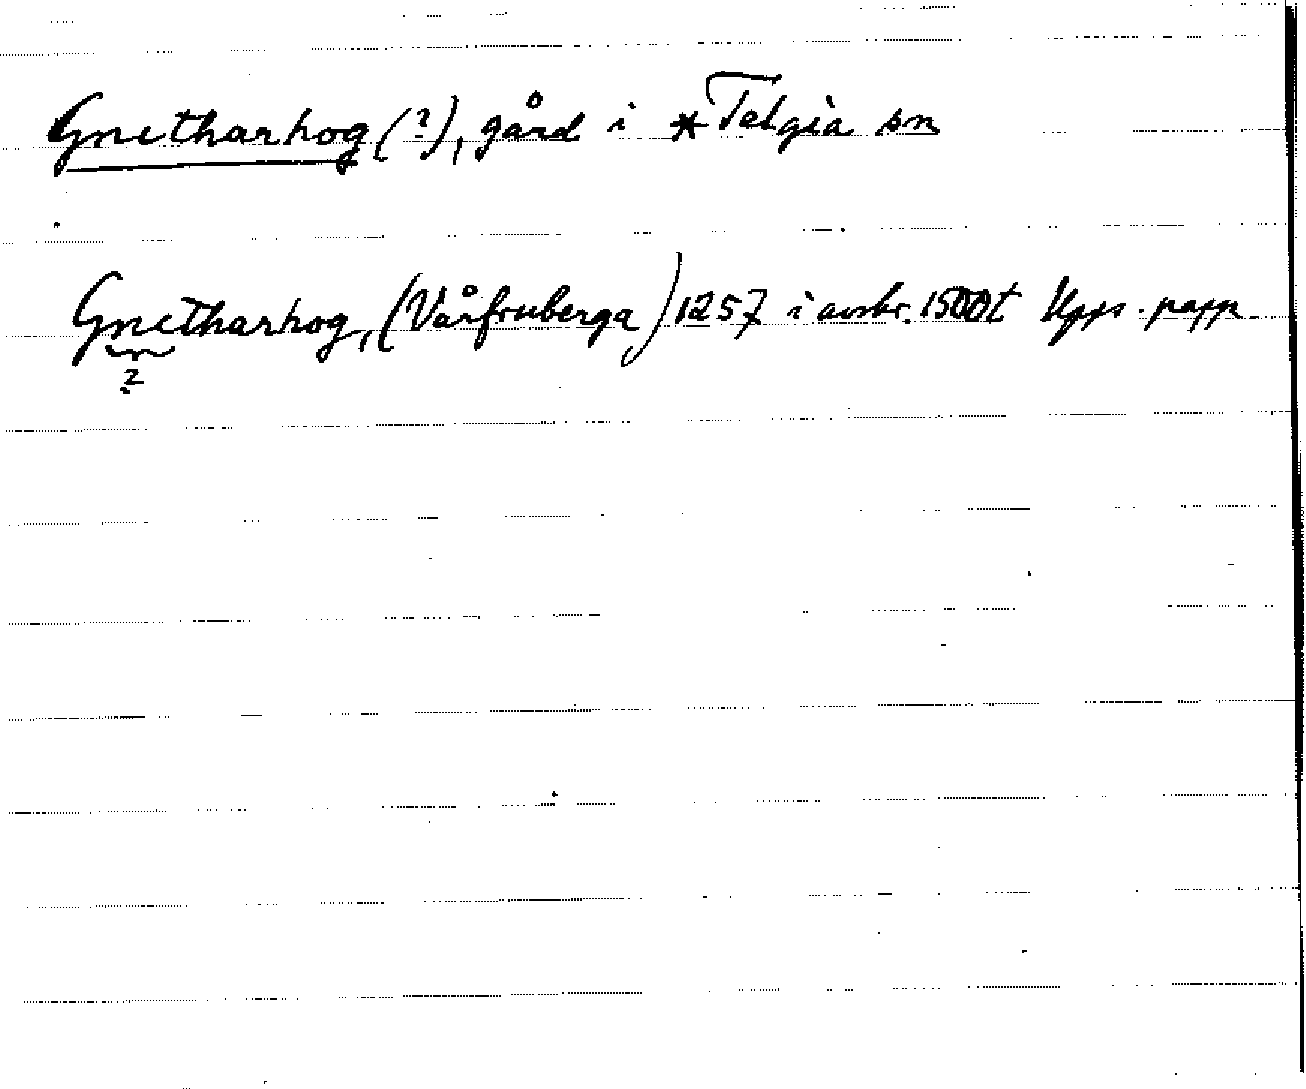 Gnetharhog (?), gård i *Telgia sn
Gnetharhog, (Vårfruberga) 1257 i avskr. 1500t Upps. papp
?